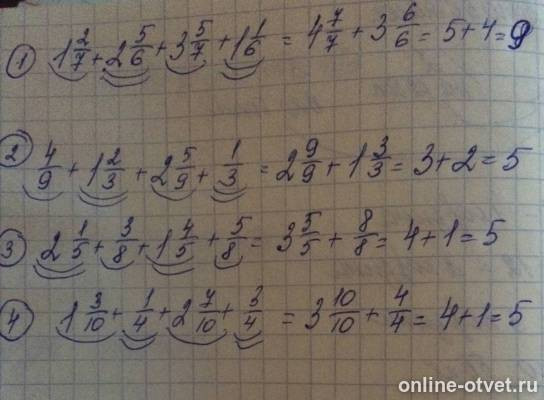 ① 1 2/7 + 2 5/6 + 3 5/7 + 1 1/6 = 4 7/7 + 3 6/6 = 5 + 4 = 9
② 4/9 + 1 2/3 + 2 5/9 + 1/3 = 2 9/9 + 1 3/3 = 3 + 2 = 5
③ 2 1/5 + 3/8 + 1 4/5 + 5/8 = 3 5/5 + 8/8 = 4 + 1 = 5
④ 1 3/10 + 1/4 + 2 7/10 + 3/4 = 3 10/10 + 4/4 = 4 + 1 = 5
online-otvet.ru